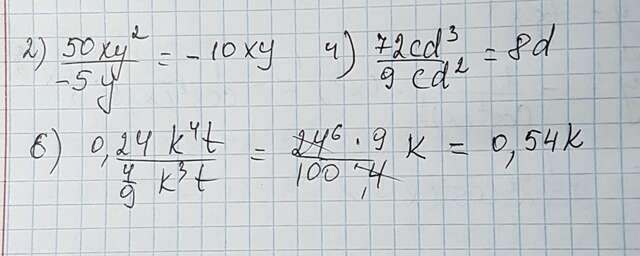 2) 50xy²/-5y = -10xy 4) 72cd³/9cd² = 8d
6) 0,24 k⁴t / 4/9 k³t = 24⁶ · 9/100 · 4 k = 0,54k